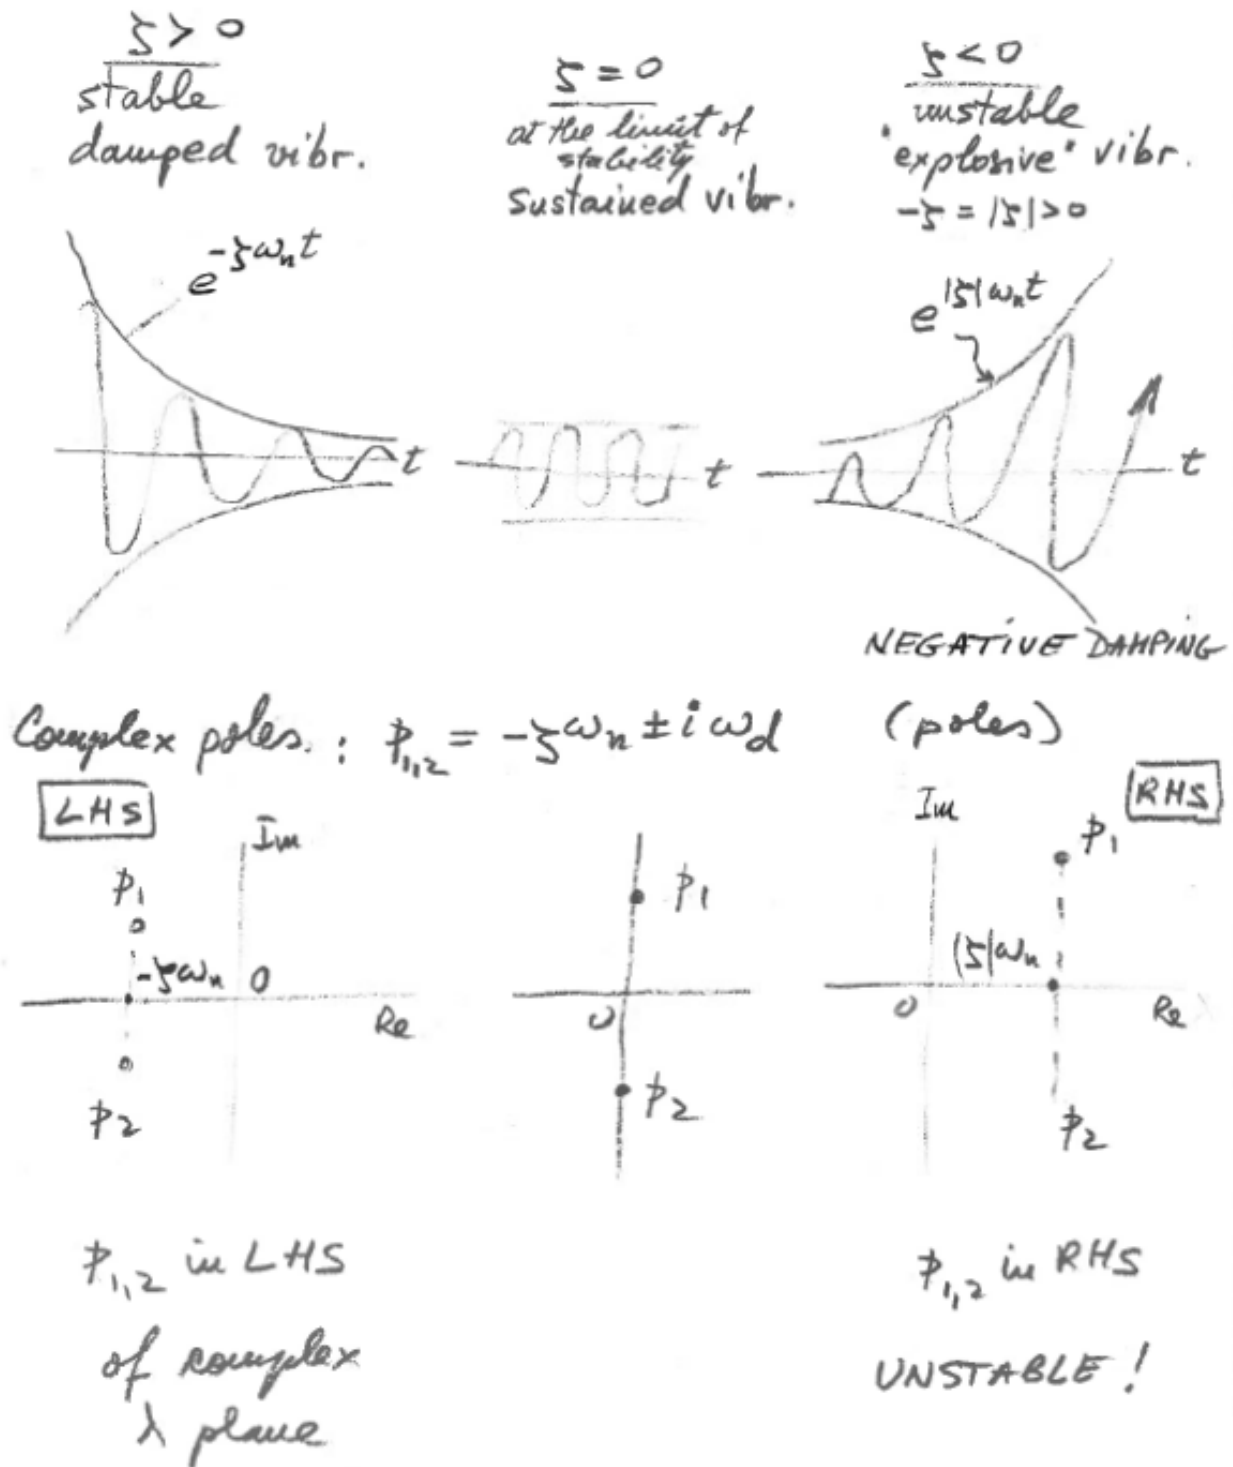 ζ > 0
stable
damped vibr.
ζ = 0
at the limit of
stability
sustained vibr.
ζ < 0
unstable
"explosive" vibr.
-ζ = |ζ| > 0
e^{-ζω_n t}
t
t
e^{|ζ|ω_n t}
t
NEGATIVE DAMPING
Complex poles : p_{1,2} = -ζω_n ± i ω_d (poles)
LHS
Im
p_1
-ζω_n 0
Re
p_2
p_1
0
p_2
RHS
Im
p_1
|ζ|ω_n
0
Re
p_2
p_{1,2} in LHS
of complex
λ plane
p_{1,2} in RHS
UNSTABLE !